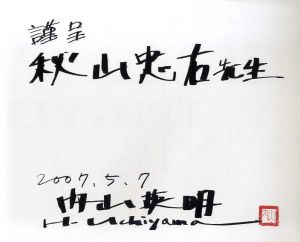 謹呈
秋山忠右先生
2007.5.7
内山英明
H. Uchiyama